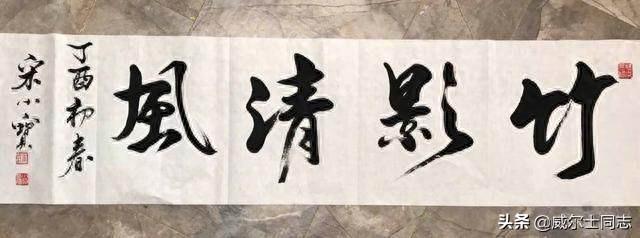 竹影清風
丁酉初春
宋小寶
头条 @威尔士同志